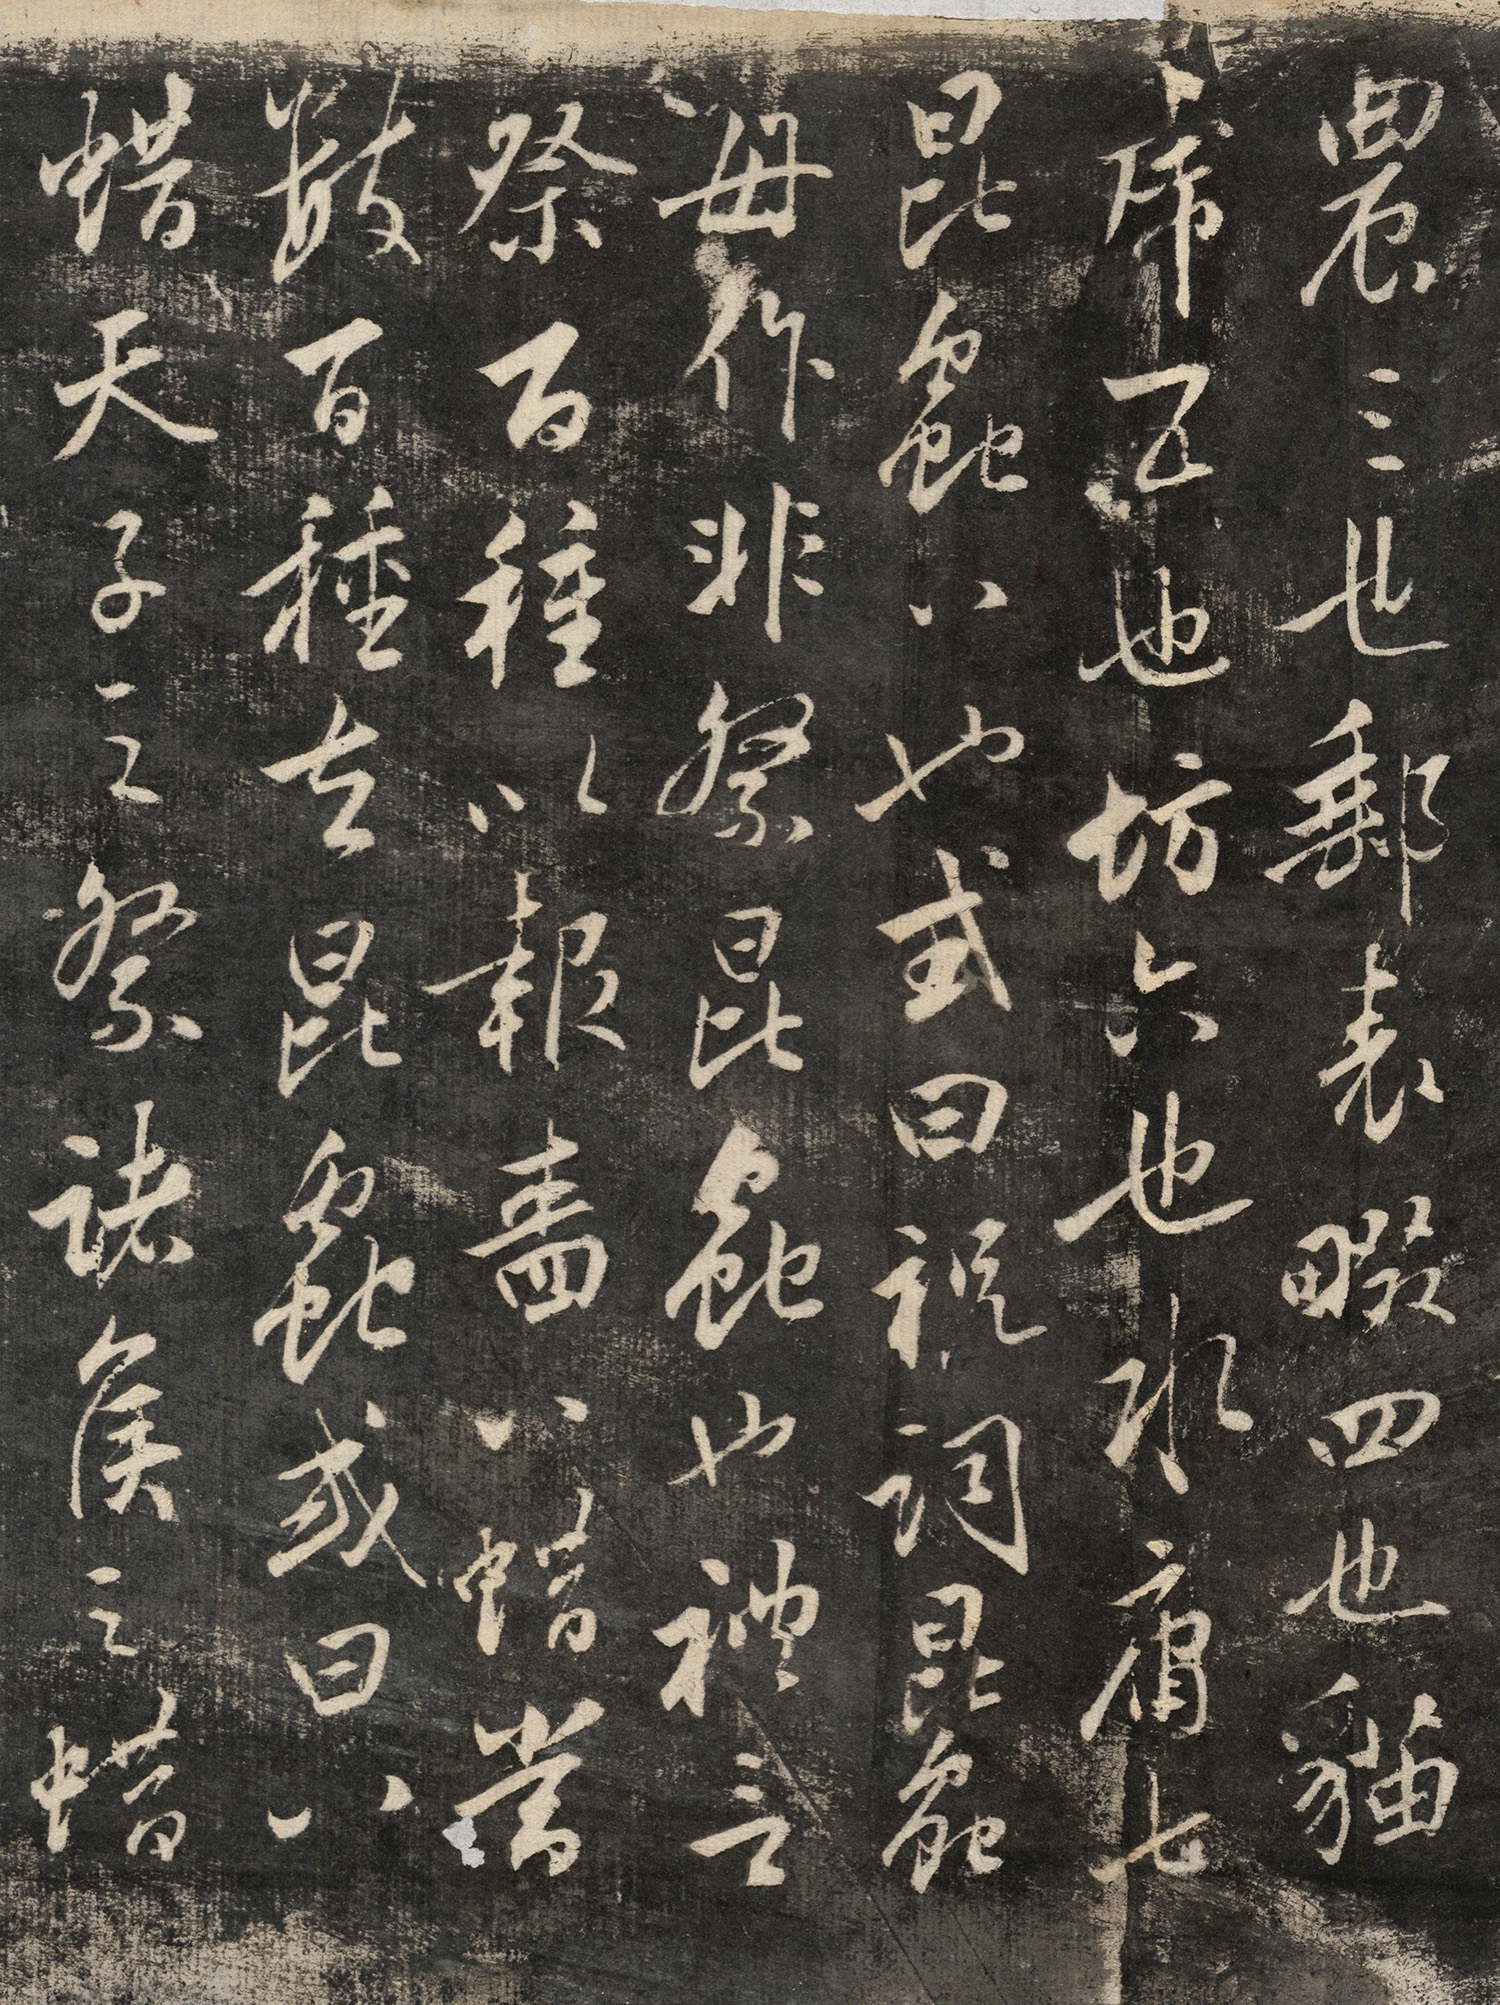 農三也郵表畷四也貓
虎五也坊六也水庸七
昆蟲八也或曰祝詞昆蟲
毋作非祭昆蟲也禮言
祭百種以報嗇八蜡當
數百種去昆蟲或曰八
蜡天子之祭諸侯之蜡